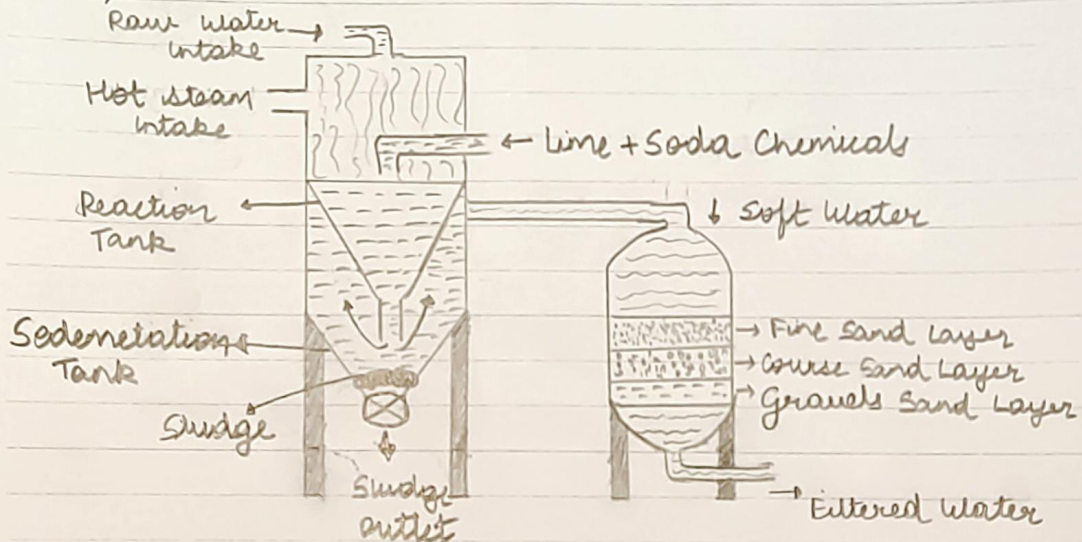 Raw Water
intake
Hot steam
intake
Lime + Soda Chemicals
Reaction
Tank
Soft Water
Sedemetation
Tank
Fine Sand Layer
Course Sand Layer
Gravels Sand Layer
Sludge
Sludge
outlet
Filtered Water